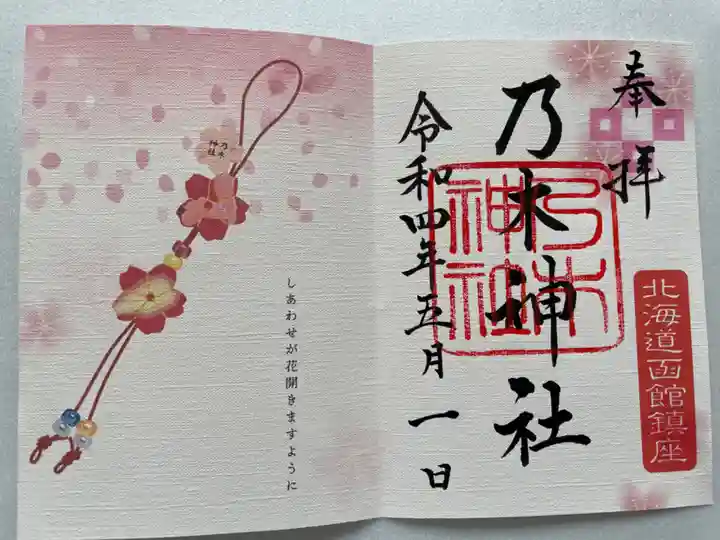 奉拝
北海道函館鎮座
乃木神社
乃木
神社
令和四年五月一日
しあわせが花開きますように
乃木
神社